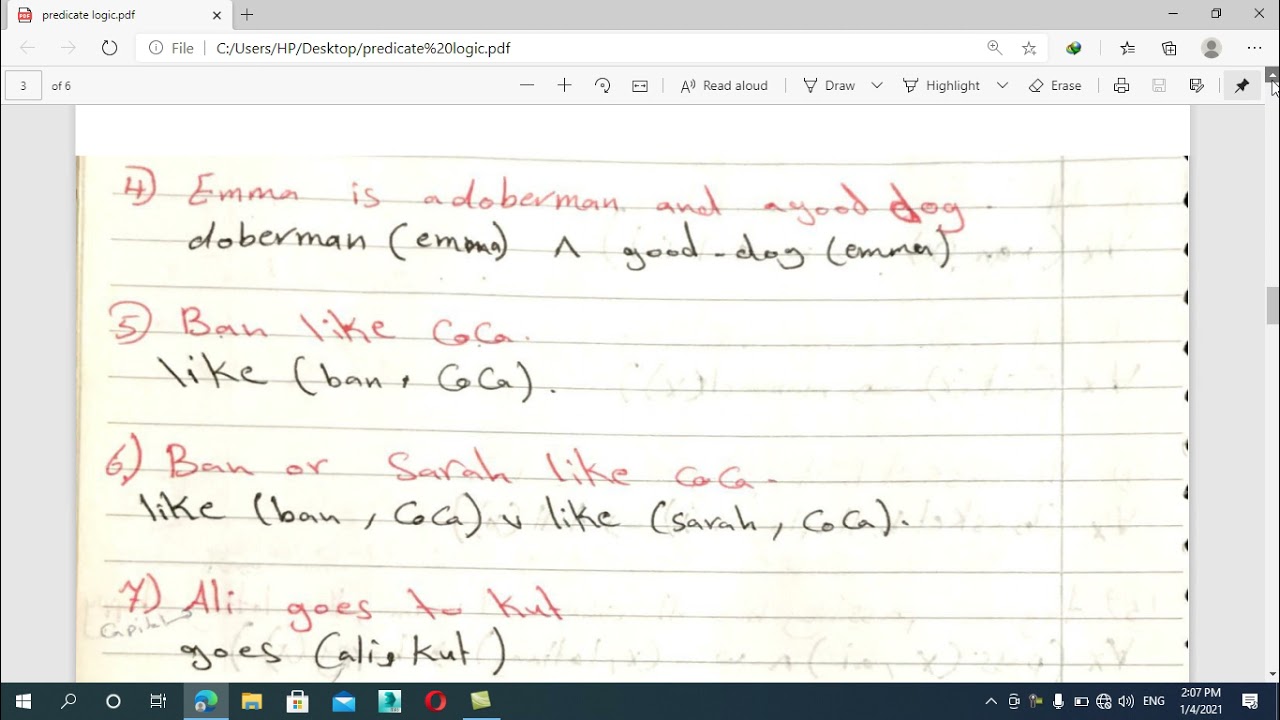 predicate logic.pdf
File C:/Users/HP/Desktop/predicate%20logic.pdf
3 of 6 Read aloud Draw Highlight Erase
4) Emma is a doberman and a good dog.
doberman (emma) ∧ good-dog (emma)
5) Ban like CoCa.
like (ban, CoCa).
6) Ban or Sarah like CoCa.
like (ban, CoCa) ∨ like (sarah, CoCa).
7) Ali goes to Kut
Capital
goes (ali, Kut)
ENG
2:07 PM
1/4/2021